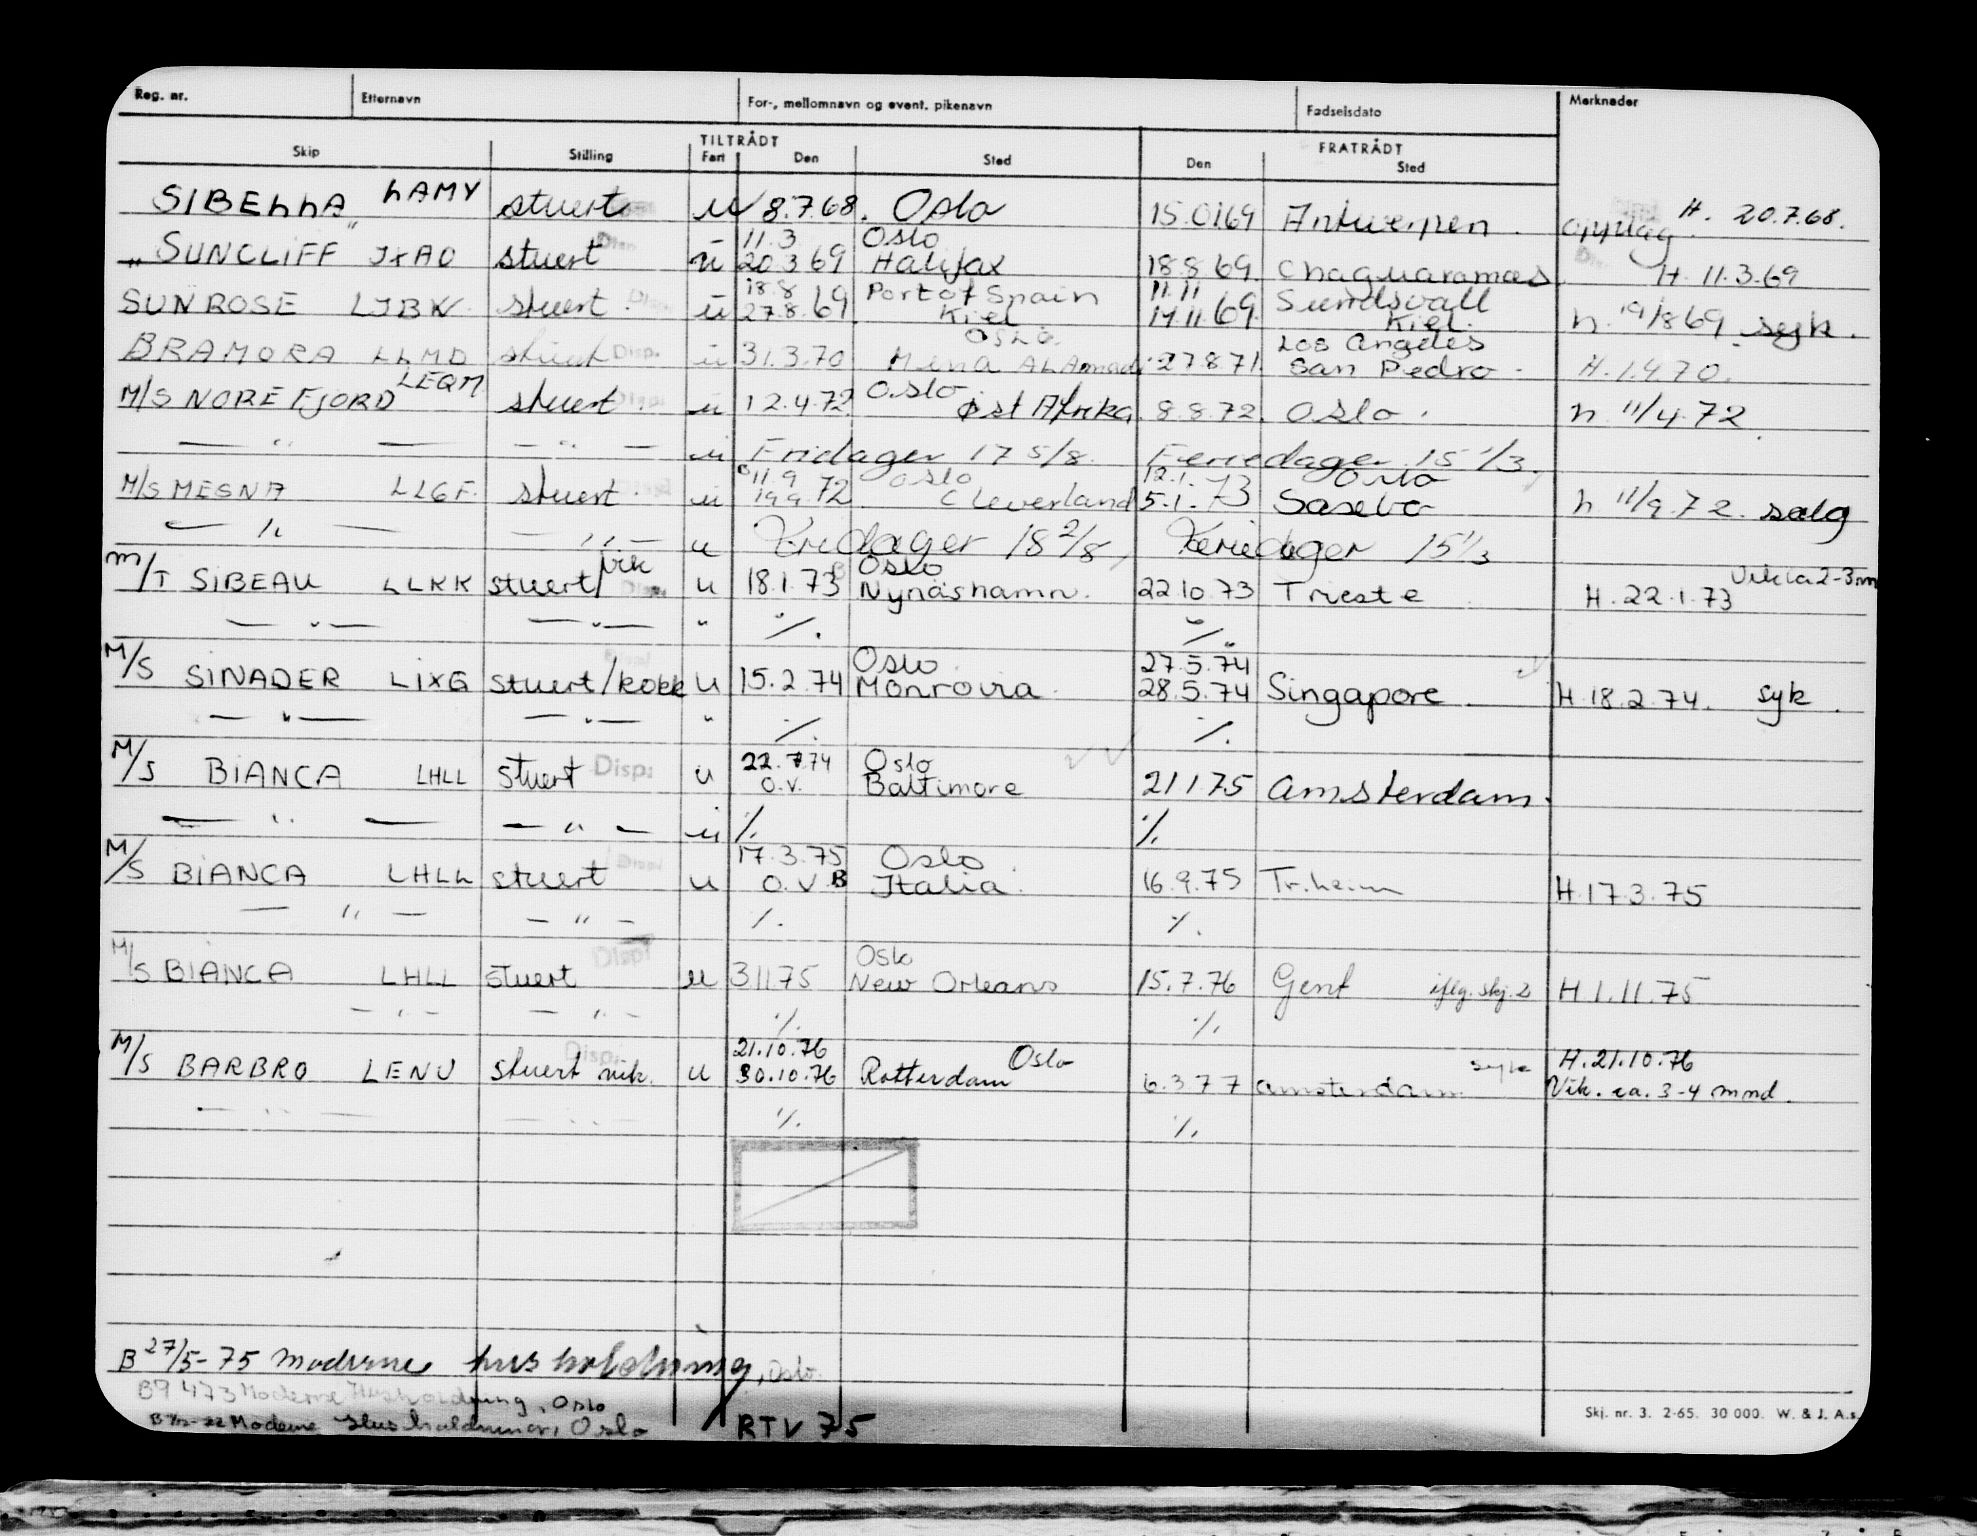 Reg. nr. Etternavn For-, mellomnavn og event. pikenavn Fødselsdato Merknader
TILTRÅDT FRATRÅDT
Skip Stilling Fart Den Sted Den Sted
SIBELLA LAMY stuert u 8.7.68. Oslo 15.0169 Antwerpen. opplag. H. 20.7.68.
11.3 Oslo
„SUNCLIFF" JXAO stuert u 20369 Halifax 18869. Chaguaramas H 11.3.69
18.8 Port of Spain 11.11 Sundsvall
SUNROSE LJBW stuert. u 27.8.69 Kiel 14.11.69. Kiel. h. 19/869 syk.
Oslo. Los Angeles
BRAMORA LLMD stuert Disp. u 31.3.70 Mena Al Amadi 27871. San Pedro. H.1.4.70.
M/S NOREFJORD LEQM stuert u 12.4.72 Oslo Øst Afrika 8.8.72. Oslo. h 11/4.72
— " — — " — u Fridager 17 5/8. Feriedager 15 1/3.
11.9 Oslo 12.1. Oslo
M/S MESNA LLGF. stuert. u 19.9.72 Cleverland 5.1.73 Sasebo h 11/9.72. salg
— " — — " — u Fridager 18 2/8, Feriedager 15 1/3
vik Oslo Vik ca 2-3 mn
M/T SIBEAU LLKK stuert/ Disp. u 18.1.73 Nynäshamn. 22.10.73 Trieste H.22.1.73
— " — — " — " %. %
Oslo 27.5.74
M/S SINADER LIXG stuert/kokk u 15.2.74 Monrovia 28.5.74 Singapore H.18.2.74. syk.
— " — — " — " %. %.
22.7.74 Oslo
M/S BIANCA LHLL stuert Disp. u O.V. Baltimore 21175 Amsterdam.
— " — — " — u % %
17.3.75 Oslo
M/S BIANCA LHLL stuert u O.V.B Italia. 16.9.75 Tr.heim H.17.3.75
— " — — " — %. %.
Oslo
M/S BIANCA LHLL stuert u 31175 New Orleans 15.7.76 Gent iflg. skj. 2 H.1.11.75
— " — — " — %. %
Disp. 21.10.76 Oslo syk H.21.10.76
M/S BARBRO LENU stuert vik. u 30.10.76 Rotterdam 6.377 amsterdam. Vik. ca. 3-4 mnd.
— " — — " — %. %
B 27/5-75 Moderne husholdning, Oslo.
B9 473 Moderne Husholdning, Oslo
Moderne Husholdning, Oslo
RTV 75
Skj. nr. 3. 2-65. 30 000. W. & J. A.s.